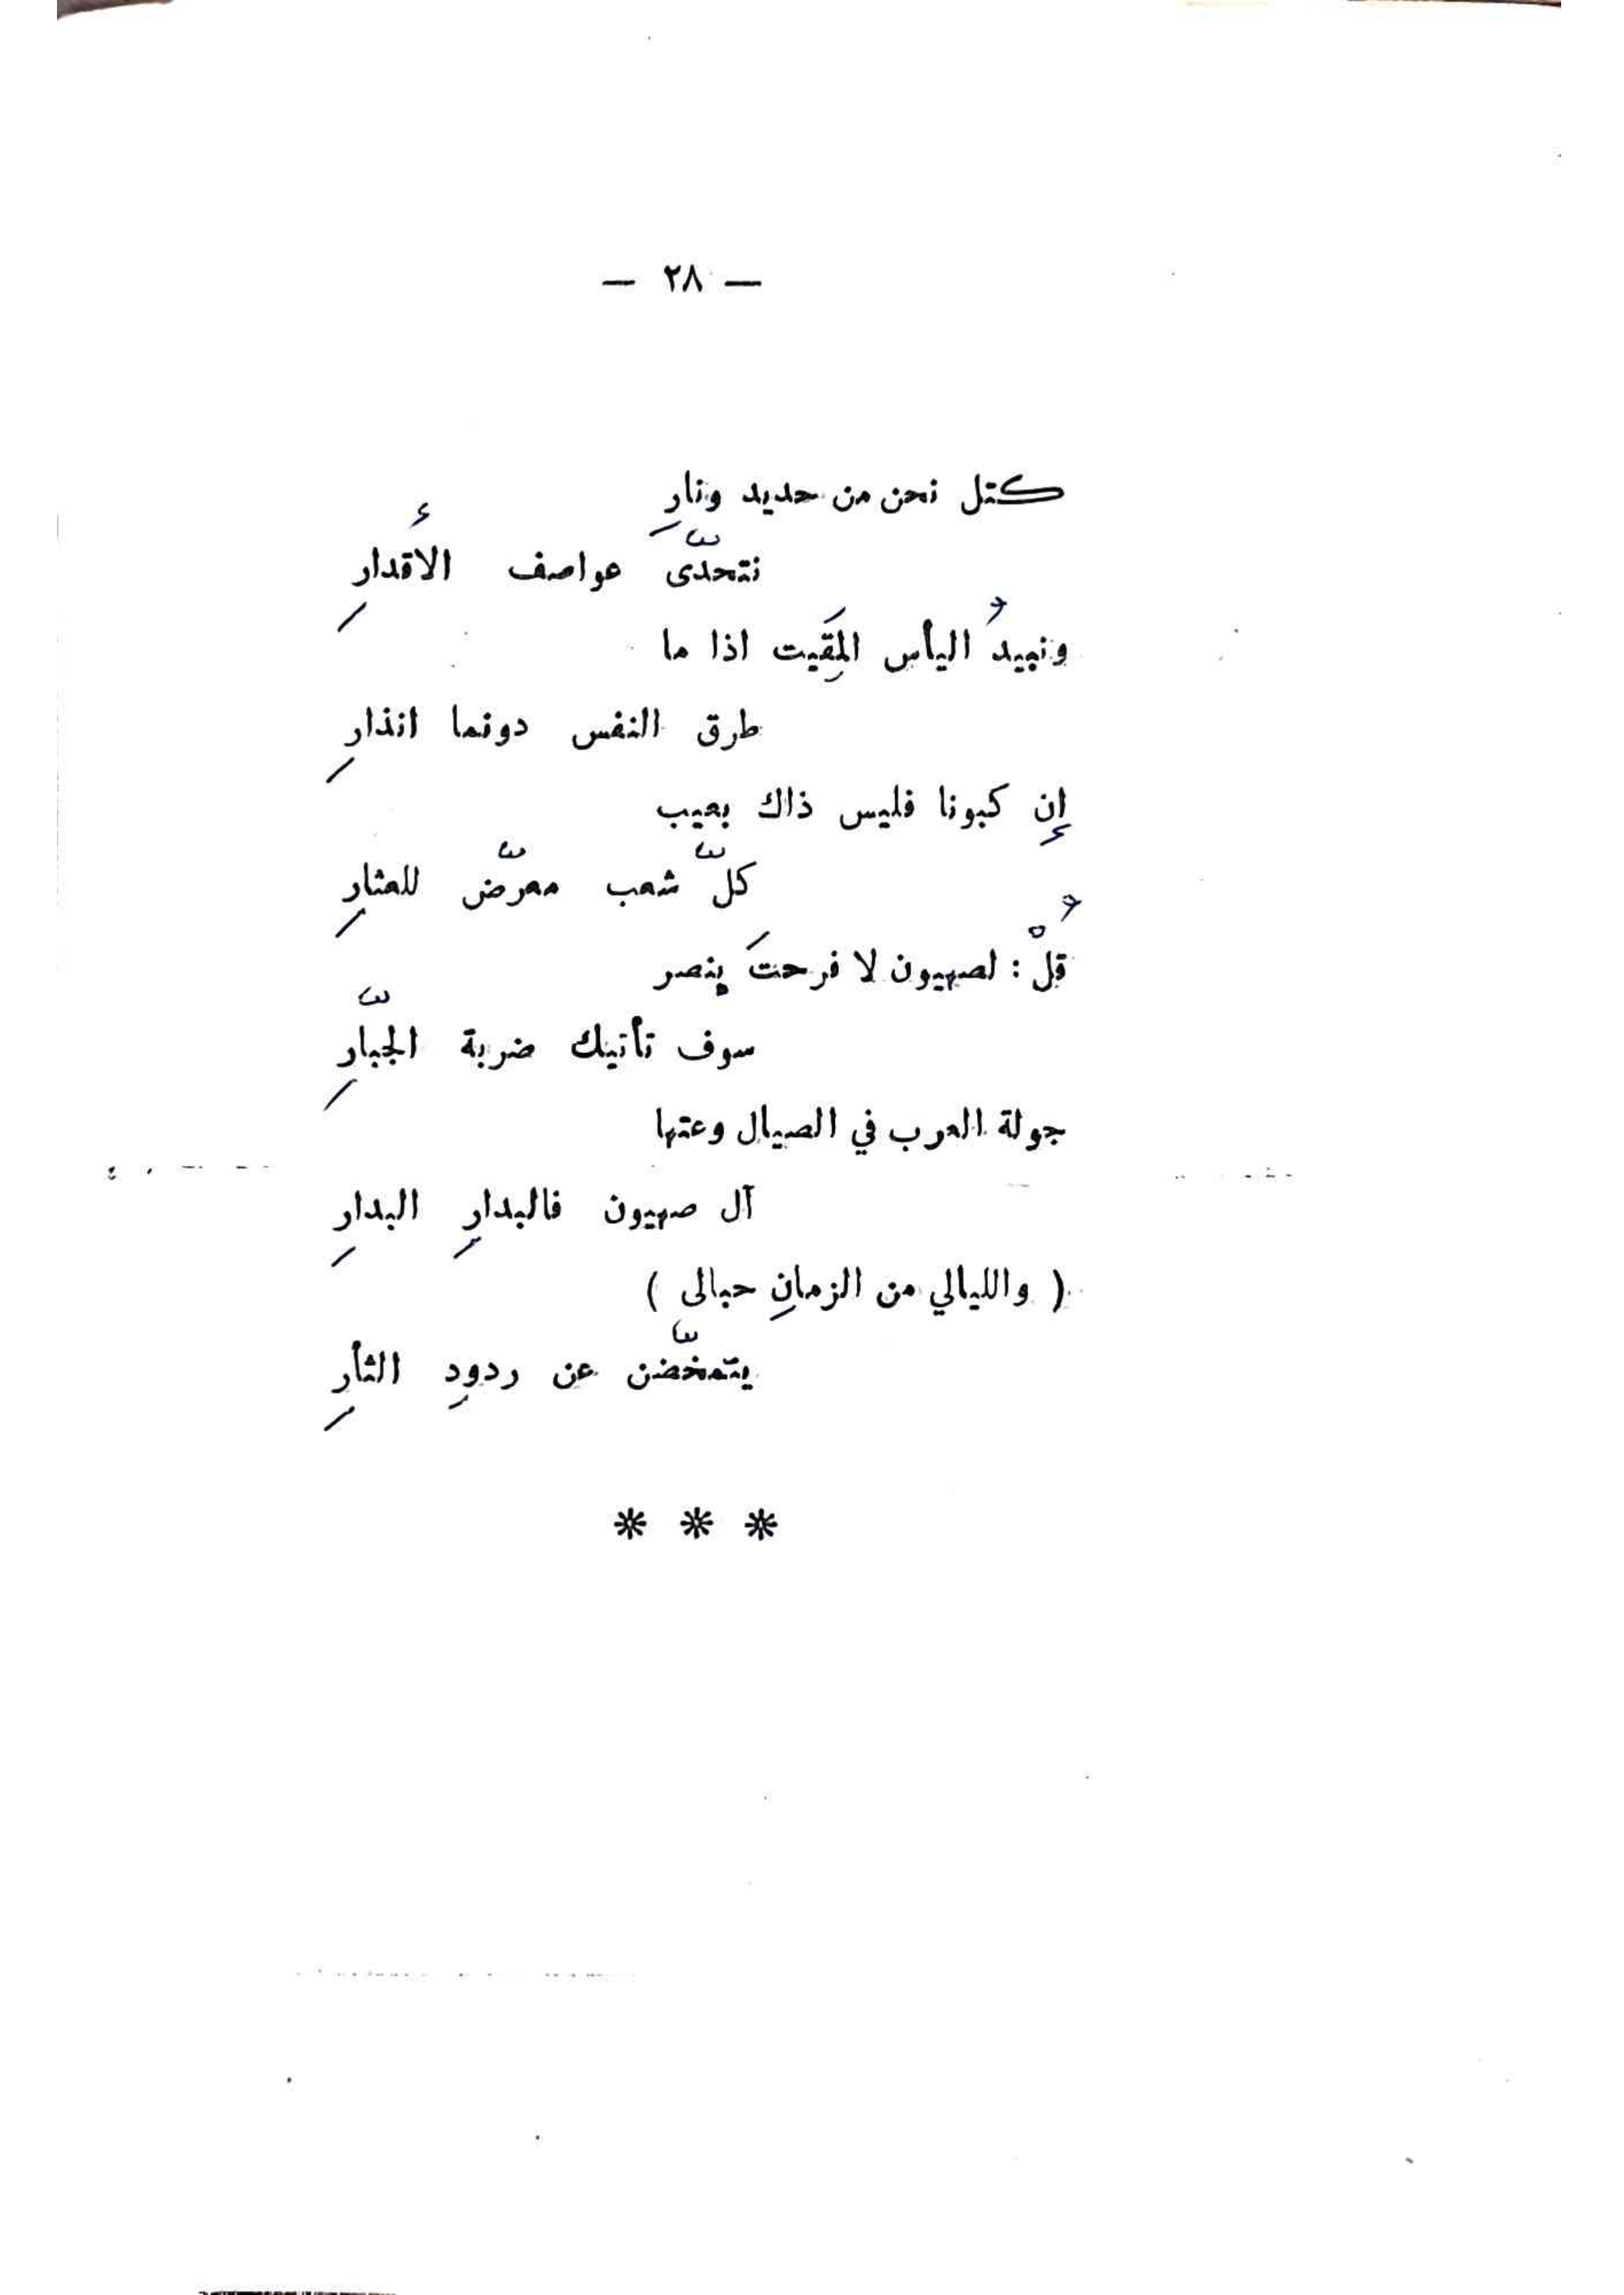 — ٢٨ —
كتل نحن من حديد ونارِ
نتحدّى عواصف الأقدارِ
ونبيدُ اليأس المَقيت اذا ما
طرق النفس دونما انذارِ
إن كبونا فليس ذاك بعيب
كلّ شعب معرّض للعثارِ
قُلْ : لصهيون لا فرحتَ بنصر
سوف تأتيك ضربة الجبّارِ
جولة العرب في الصيال وعتها
آل صهيون فالبدارِ البدارِ
( والليالي من الزمانِ حبالى )
يتمخّضن عن ردودِ الثأرِ
* * *